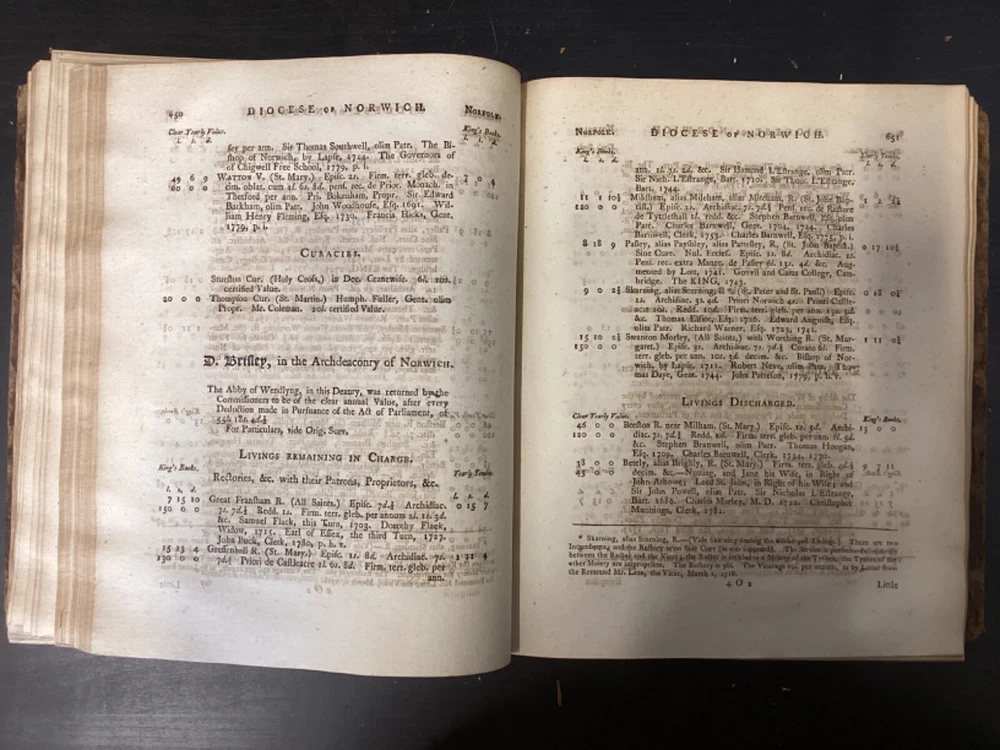 650 DIOCESE OF NORWICH. NORFOLK.
Clear Yearly Value. King's Books.
l. s. d. l. s. d.
sey per ann. Sir Thomas Southwell, olim Patr. The Bi-
shop of Norwich, by Lapse, 1724. The Governors of
of Chigwell Free School, 1779, p. i.
49 6 9 WATTON V. (St. Mary.) Episc. 2s. Firm. terr. gleb. de- 7 0 4
60 0 0 cim. oblat. cum 2l. 6s. 8d. pens. rec. de Prior. Monach. in
Thetford per ann. Pri. Bokenham, Propr. Sir Edward
Barkham, olim Patr. John Woodhouse, Esq. 1691. Wil-
liam Henry Fleming, Esq. 1730. Francis Hicks, Gent.
1779, p. i.
CURACIES.
Sturston Cur. (Holy Cross,) in Dec. Cranewise. 6l. 10s.
certified Value.
20 0 0 Thompson Cur. (St. Martin.) Humph. Fuller, Gent. olim
Propr. Mr. Coleman. 20l. certified Value.
D. Brisley, in the Archdeaconry of NORWICH.
The Abby of Wendlyng, in this Deanry, was returned by the
Commissioners to be of the clear annual Value, after every
Deduction made in Pursuance of the Act of Parliament, of
55l. 18s. 4d.½
For Particulars, vide Orig. Surv.
LIVINGS REMAINING IN CHARGE.
King's Books. Yearly Tenths.
Rectories, &c. with their Patrons, Proprietors, &c.
l. s. d. l. s. d.
7 15 10 Great Fransham R. (All Saints.) Episc. 7d.½ Archidiac. 0 15 7
150 0 0 7s. 7d.½ Redd. 1s. Firm. terr. gleb. per annum 2l. 2s. 3d.
&c. Samuel Flack, this Turn, 1703. Dorothy Flack,
Widow, 1715. Earl of Essex, the third Turn, 1727.
John Buck, Clerk, 1780, p. h. v.
15 23 4 Gressenhall R. (St. Mary.) Episc. 2s. 8d. Archidiac. 7s. 1 11 4
130 0 0 7d.½ Priori de Castleacre 1l. 6s. 8d. Firm. terr. gleb. per
ann.
NORFOLK. DIOCESE OF NORWICH. 651
King's Books. Yearly Tenths.
l. s. d.
ann. 1l. 7s. 2d. &c. Sir Hamond L'Estrange, olim Patr.
Sir Nich. L'Estrange, Bart. 1710. Sir Thos. L'Estrange,
Bart. 1744.
11 1 10½ Mildham, alias Mileham, alias Meicham, R. (St. John Bap- 1 2 2¼
120 0 0 tist.) Episc. 2s. Archidiac. 7s. 7d.½ Pens. rec. de Rectore
de Tyttleshall 1l. redd. &c. Stephen Barnwell, Esq. olim
Patr. Charles Barnwell, Gent. 1704, 1744. Charles
Barnwell, Clerk, 1753. Charles Barnwell, Esq. 1775, p. i.
8 18 9 Pasley, alias Payshley, alias Pattesley, R. (St. John Baptist.) 0 17 10½
Sine Cure. Nul. Eccles. Episc. 1s. 8d. Archidiac. 1s.
Pens. rec. extra Maner. de Pasley 6l. 13s. 4d. &c. Aug-
mented by Lott, 1741. Gonvil and Caius College, Cam-
bridge. The KING, 1743.
9 0 2½ Skarning, alias Scarning, R.* (St. Peter and St. Paul.) Episc. 0 18 0¼
1s. Archidiac. 3s. 4d. Priori Norwich 4s. Priori Castle-
acre 20s. Redd. 10d. Firm. terr. gleb. per ann. 13s. 3d.
&c. Thomas Elliot, Esq. 1716. Edward Augurish, Esq.
olim Patr. Richard Warner, Esq. 1723, 1741.
15 10 2½ Swanton Morley, (All Saints,) with Worthing R. (St. Mar- 1 11 0¼
150 0 0 garet.) Episc. 3s. Archidiac. 7s. 7d.½ Curato 6l. Firm.
terr. gleb. per ann. 10s. 3d. decim. &c. Bishop of Nor-
wich, by Lapse, 1711. Robert Neve, olim Patr. Tho-
mas Daye, Gent. 1744. John Patteson, 1779, p. h. v.
LIVINGS DISCHARGED.
Clear Yearly Value. King's Books.
46 0 0 Beeston R. near Millham. (St. Mary.) Episc. 1s. 3d. Archi- 13 0 0
120 0 0 diac. 7s. 7d.½ Redd. 2d. Firm. terr. gleb. per ann. 1l. 5d.
&c. Stephen Branwell, olim Patr. Thomas Hoogan,
Esq. 1709. Charles Barnwell, Clerk, 1734, 1770.
38 0 0 Betely, alias Brighly, R. (St. Mary.) Firm. terr. gleb. 9 3 11
45 0 0 decim. &c. Nutting, and Jane his Wife, in Right of
John Athow; Lord St. John, in Right of his Wife; and
Sir John Powell, olim Patr. Sir Nicholas L'Estrange,
Bart. 1680. Charles Morley, M. D. 1722. Christopher
Munnings, Clerk, 1781.
* Skarning, alias Scarning, R. There are two
Incumbents; and the Rectory
between the Rector
other Moiety are impropriate. The Rectory is 36l. The Vicarage 19l. per annum, as by Letter from
the Reverend Mr. Lane, the Vicar, March 1, 1718.
4 O 2 Little